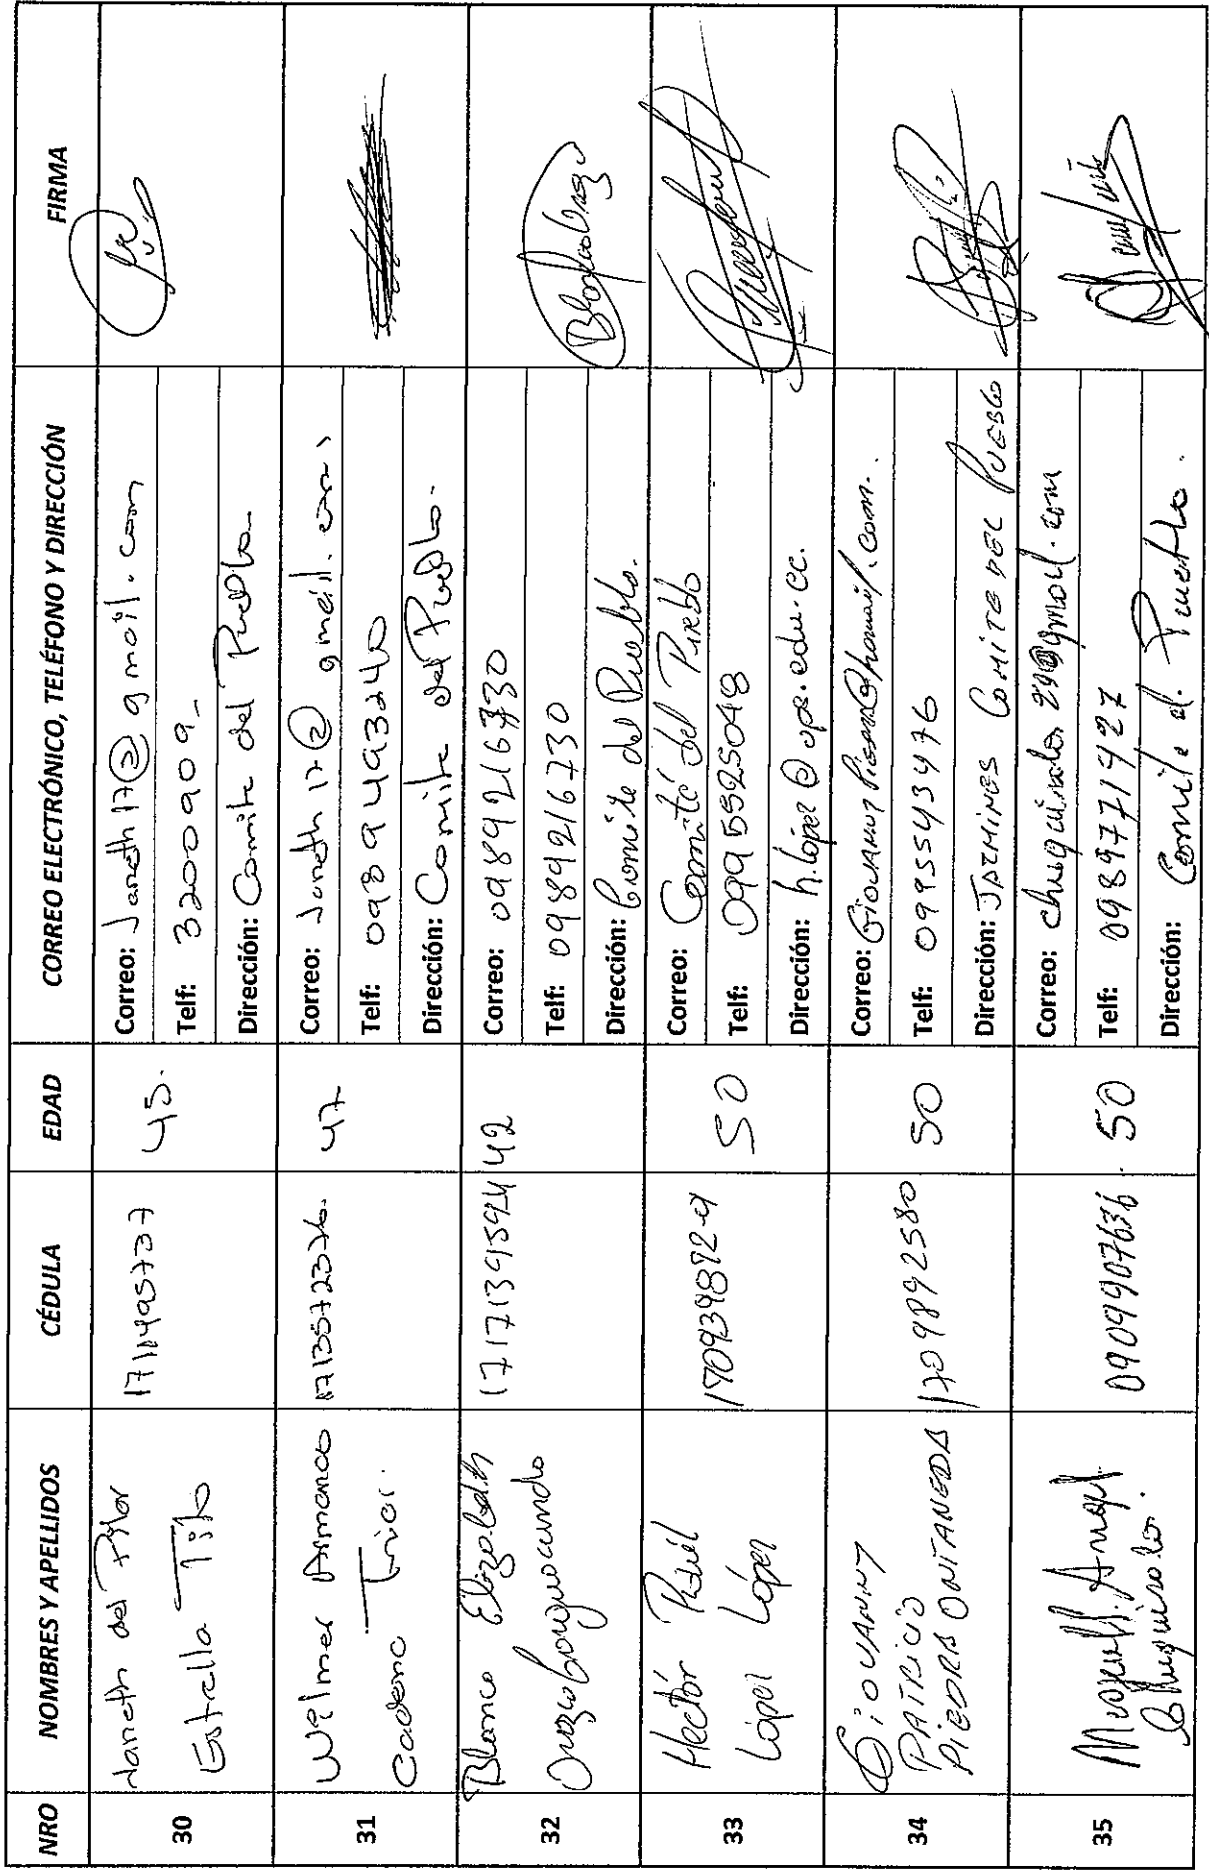 NRO NOMBRES Y APELLIDOS CÉDULA EDAD CORREO ELECTRÓNICO, TELÉFONO Y DIRECCIÓN FIRMA
30
Janeth del Pilar
Estrella
45.
Correo: Janeth17@gmail.com
Telf: 3200909
Dirección: Comite del Pueblo
31
Wilmer Armando
Cadena
47
Correo: Janeth17@gmail.com
Telf: 0989493240
Dirección: Comite del Pueblo.
32
Blanca Elizabeth
1717139594
42
Correo: 0989216730
Telf: 0989216730
Dirección: Comite del Pueblo.
33
Hectór Patúel
López López
170939872-9
50
Correo: Comité del Pueblo
Telf: 0995525048
Dirección: h.lopez@ops.edu.cc.
34
GiOVANNY
PATRICIO
PIEDRA ONTANEDA
1709892580
50
Correo:
Telf: 0995543476
Dirección: JAZMINES COMITE DEL PUEBLO
35
Angel
0909907636
50
Correo:
Telf: 0989771427
Dirección: Comite d. Pueblo.